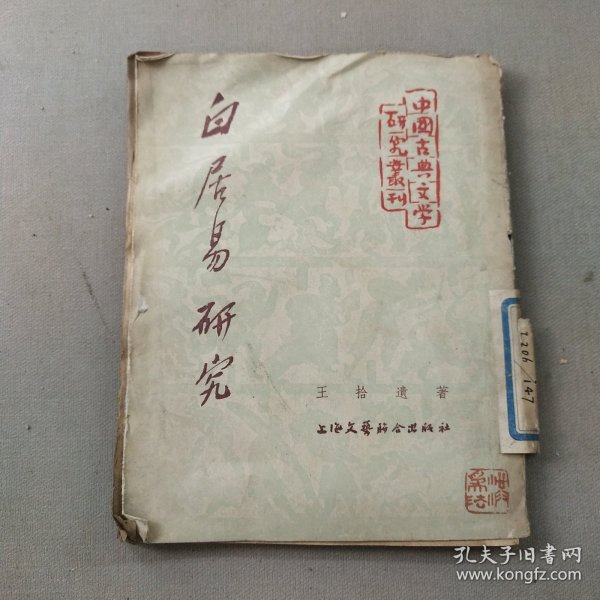 中國古典文学
研究叢刊
白居易研究
王拾遺著
上海文藝聯合出版社
2206/147
孔夫子旧书网
www.kongfz.com